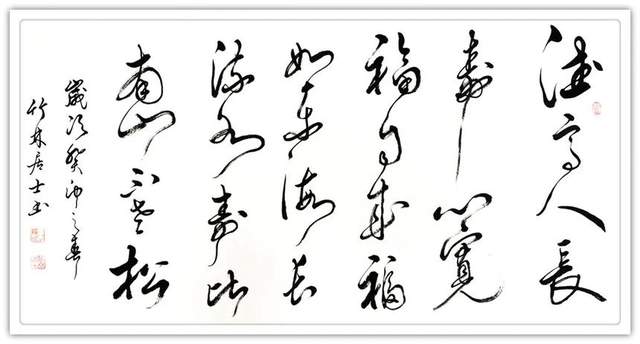 德高人長
壽心寬
福自來福
如東海長
流水壽比
南山不老松
歲次癸卯之春
竹林居士书